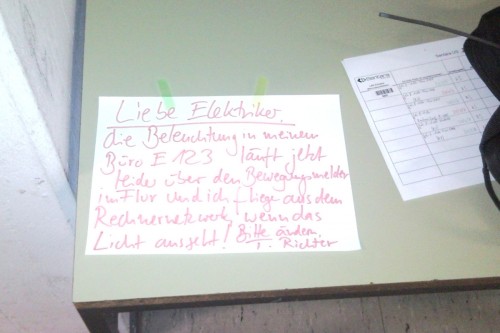 Liebe Elektriker,
die Beleuchtung in meinem
Büro E 123 läuft jetzt
leider über den Bewegungsmelder
im Flur und ich fliege aus dem
Rechnernetzwerk, wenn das
Licht ausgeht! Bitte ändern.
T. Richter